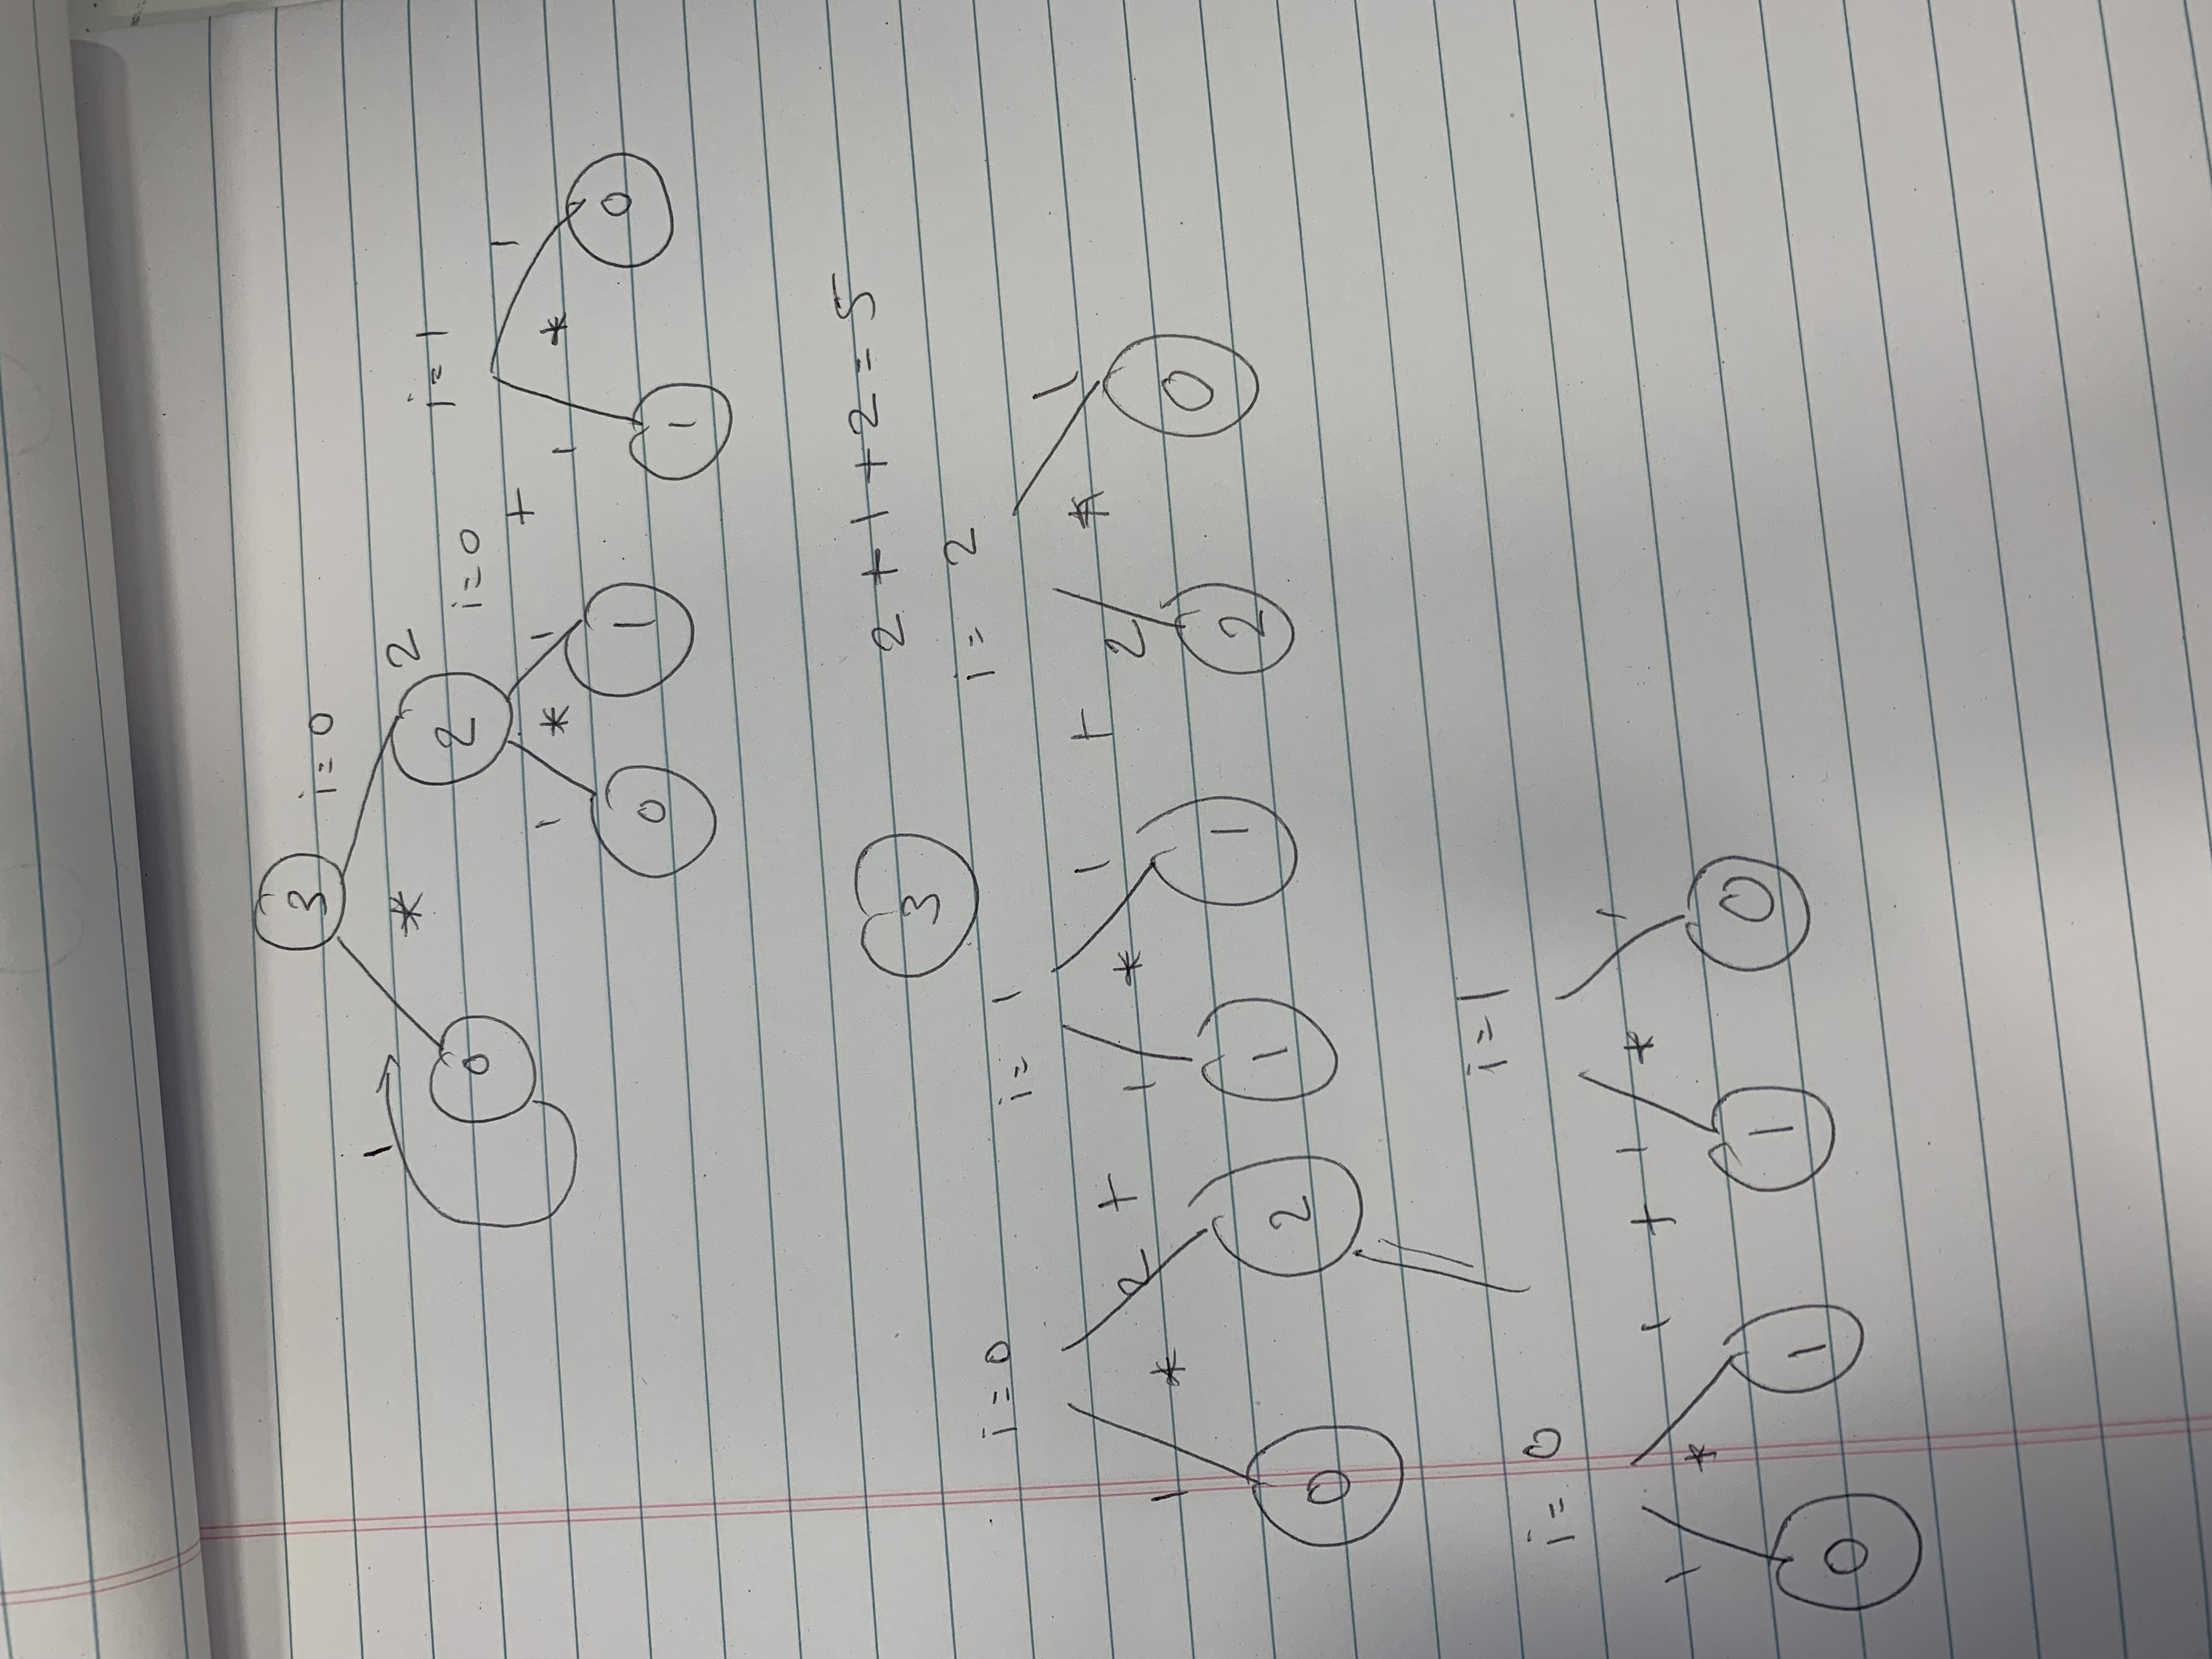 3 i=0
1 * 2 2 i=1
0 i=0
1 * 1 + 1 * 1
0 1 1 0
3 2+1+2=5
i=0 i=1 i=2
1 * 2 + 1 * 1 + 2 * 1
0 2 1 1 2 0
i=0 i=1
1 * 1 + 1 * 1
0 1 1 0